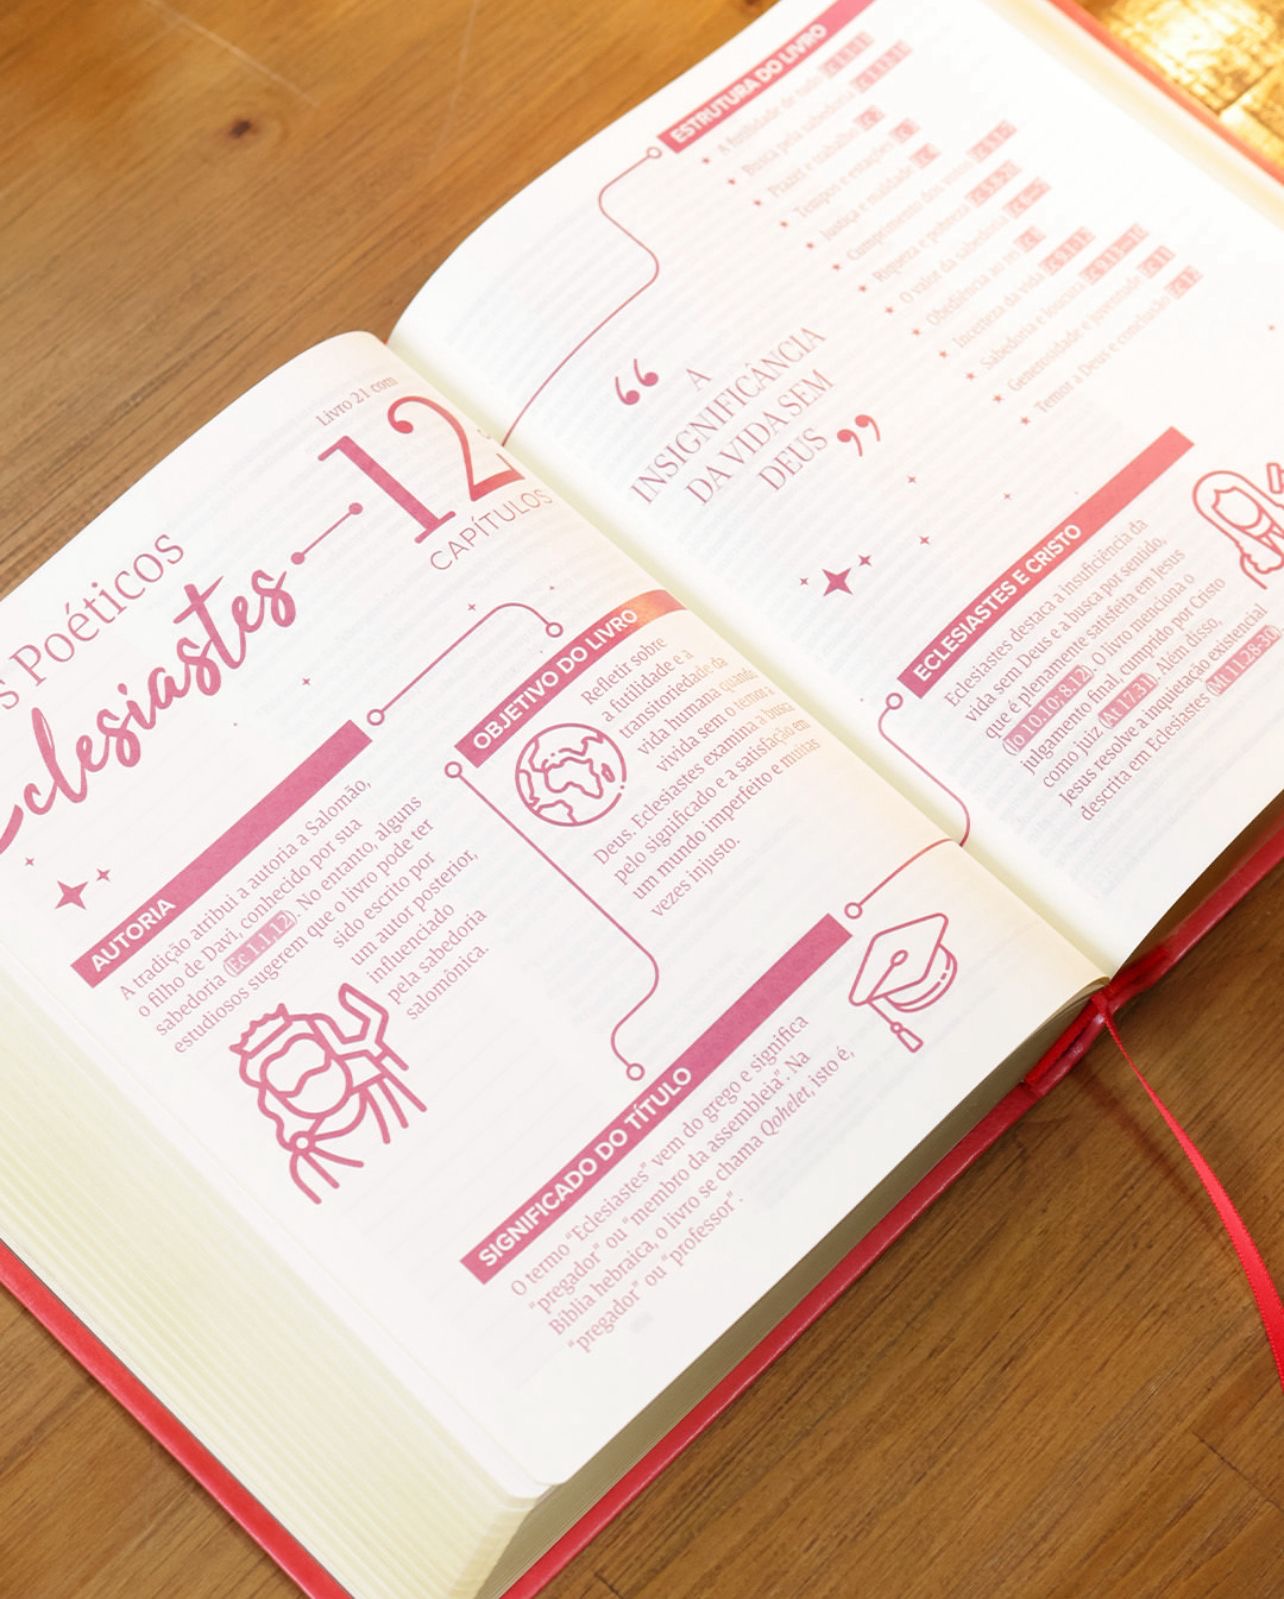 s Poéticos
Eclesiastes
Livro 21 com
12
CAPÍTULOS
AUTORIA
A tradição atribui a autoria a Salomão,
o filho de Davi, conhecido por sua
sabedoria (Ec 1.1,12). No entanto, alguns
estudiosos sugerem que o livro pode ter
sido escrito por
um autor posterior,
influenciado
pela sabedoria
salomônica.
OBJETIVO DO LIVRO
Refletir sobre
a futilidade e a
transitoriedade da
vida humana quando
vivida sem o temor a
Deus. Eclesiastes examina a busca
pelo significado e a satisfação em
um mundo imperfeito e muitas
vezes injusto.
SIGNIFICADO DO TÍTULO
O termo “Eclesiastes” vem do grego e significa
“pregador” ou “membro da assembleia”. Na
Bíblia hebraica, o livro se chama Qohelet, isto é,
“pregador” ou “professor”.
ESTRUTURA DO LIVRO
A futilidade de tudo
Busca pela sabedoria
Prazer e trabalho
Tempos e estações
Justiça e maldade
Cumprimento dos votos
Riqueza e pobreza
O valor da sabedoria
Obediência ao rei
Incerteza da vida
Sabedoria e loucura
Generosidade e juventude
Temor a Deus e conclusão
“ A
INSIGNIFICÂNCIA
DA VIDA SEM
DEUS ”
ECLESIASTES E CRISTO
Eclesiastes destaca a insuficiência da
vida sem Deus e a busca por sentido,
que é plenamente satisfeita em Jesus
(Jo 10.10; 8.12). O livro menciona o
julgamento final, cumprido por Cristo
como juiz (At 17.31). Além disso,
Jesus resolve a inquietação existencial
descrita em Eclesiastes (Mt 11.28-30)